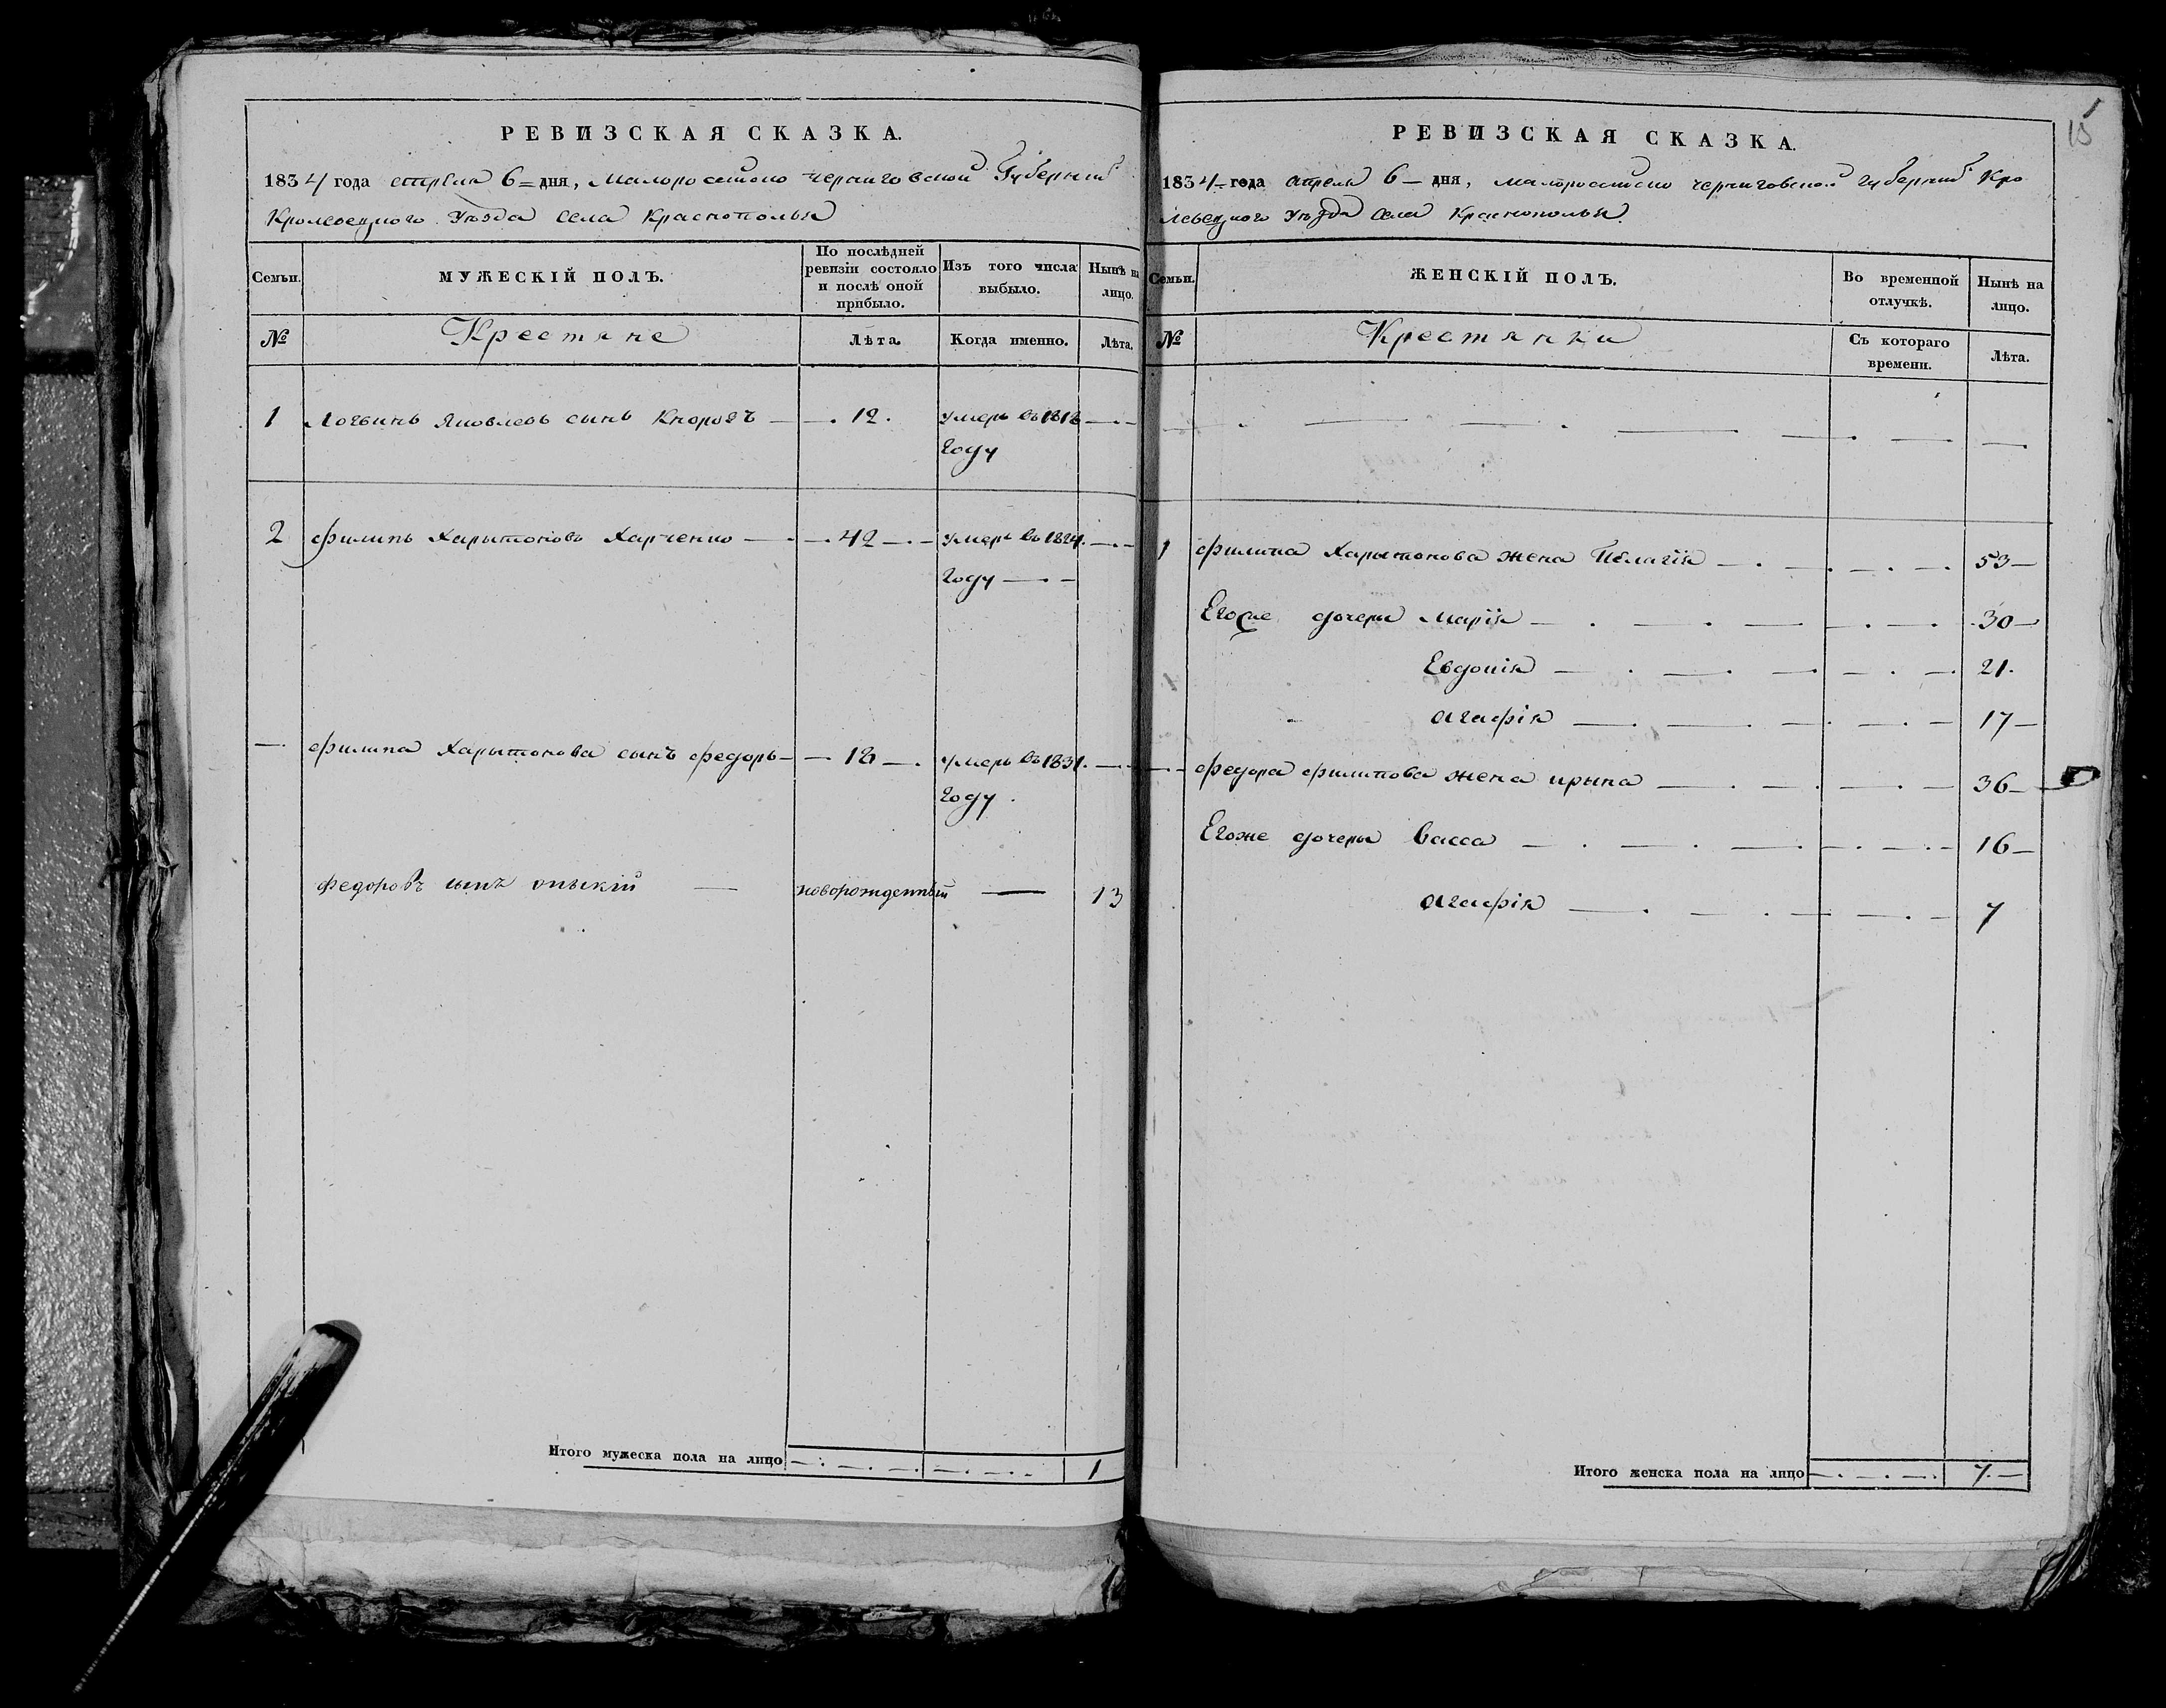 РЕВИЗСКАЯ СКАЗКА.
1834 года апреля 6 дня, Малороссийско Черниговской Губернии
Кролевецкого Уезда Села Краснополья
Семьи.
МУЖЕСКІЙ ПОЛЪ.
По послѣдней ревизіи состояло и послѣ оной прибыло.
Изъ того числа выбыло.
Нынѣ на лицо.
№
Крестяне
Лѣта.
Когда именно.
Лѣта.
1 Логвинъ Яковлевъ сынъ 12. умеръ въ
году
2 Филипъ Харытоновъ Харченко 42 умеръ въ 1824.
году
Филипа Харытонова сынъ Федоръ 18 умеръ въ 1831.
году.
Федоровъ сынъ новорожденный 13
Итого мужеска пола на лицо 1
15
РЕВИЗСКАЯ СКАЗКА.
1834 года апреля 6 дня, Малороссийско Черниговской Губернии Кро
левецкого Уезда Села Краснополья.
Семьи.
ЖЕНСКІЙ ПОЛЪ.
Во временной отлучкѣ.
Нынѣ на лицо.
№
Крестянки
Съ котораго времени.
Лѣта.
1 Филипа Харытонова жена Пелагія 53
Егоже дочери Марія 30
Евдокія 21.
Агафія 17
Федора Филипова жена Ирына 36
Егоже дочеры Васса 16
Агафія 7
Итого женска пола на лицо 7